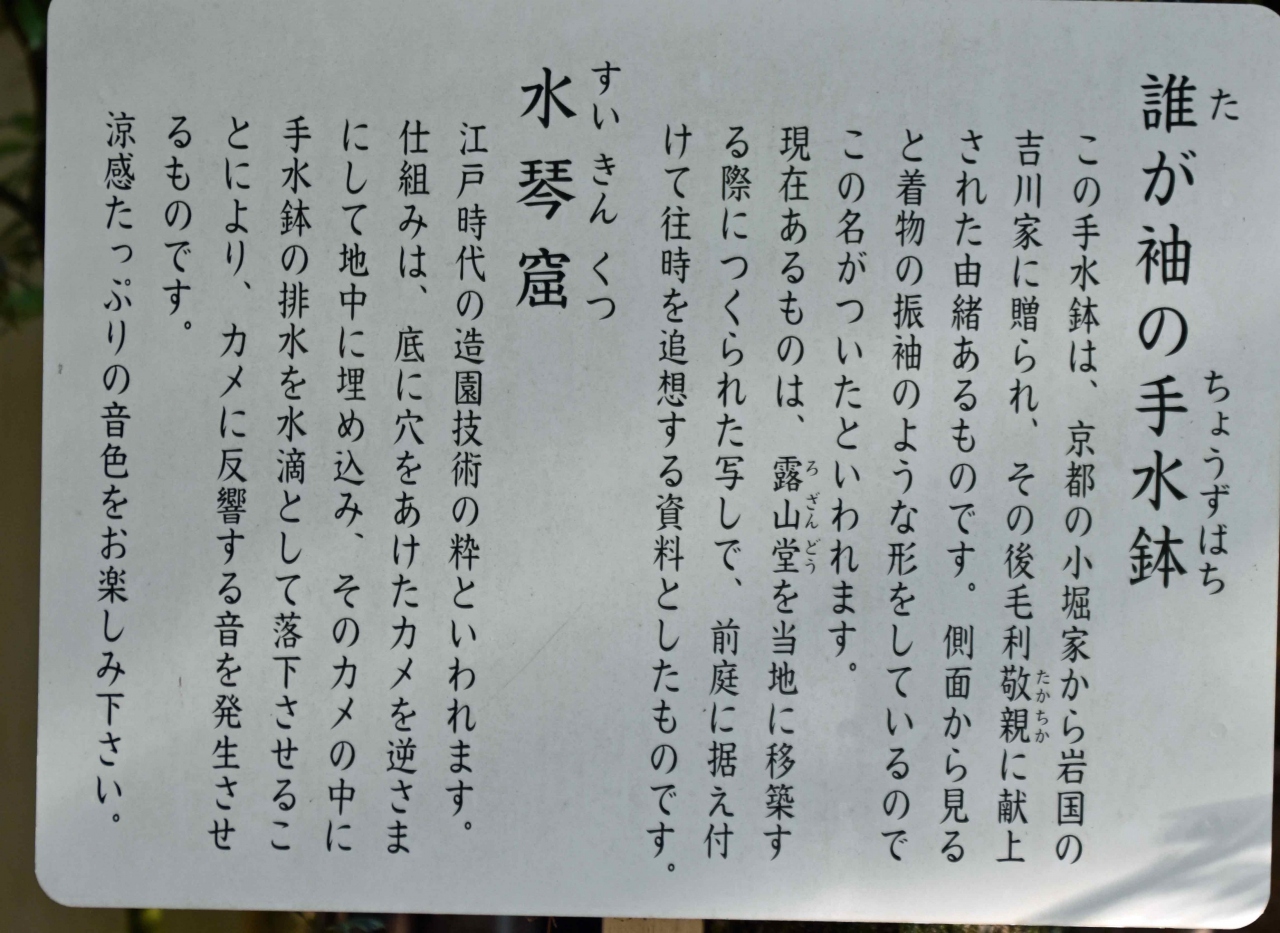 誰が袖の手水鉢
た
ちょうずばち
この手水鉢は、京都の小堀家から岩国の
吉川家に贈られ、その後毛利敬親に献上
たかちか
された由緒あるものです。側面から見る
と着物の振袖のような形をしているので
この名がついたといわれます。
現在あるものは、露山堂を当地に移築す
ろざんどう
る際につくられた写しで、前庭に据え付
けて往時を追想する資料としたものです。
水琴窟
すいきんくつ
江戸時代の造園技術の粋といわれます。
仕組みは、底に穴をあけたカメを逆さま
にして地中に埋め込み、そのカメの中に
手水鉢の排水を水滴として落下させるこ
とにより、カメに反響する音を発生させ
るものです。
涼感たっぷりの音色をお楽しみ下さい。